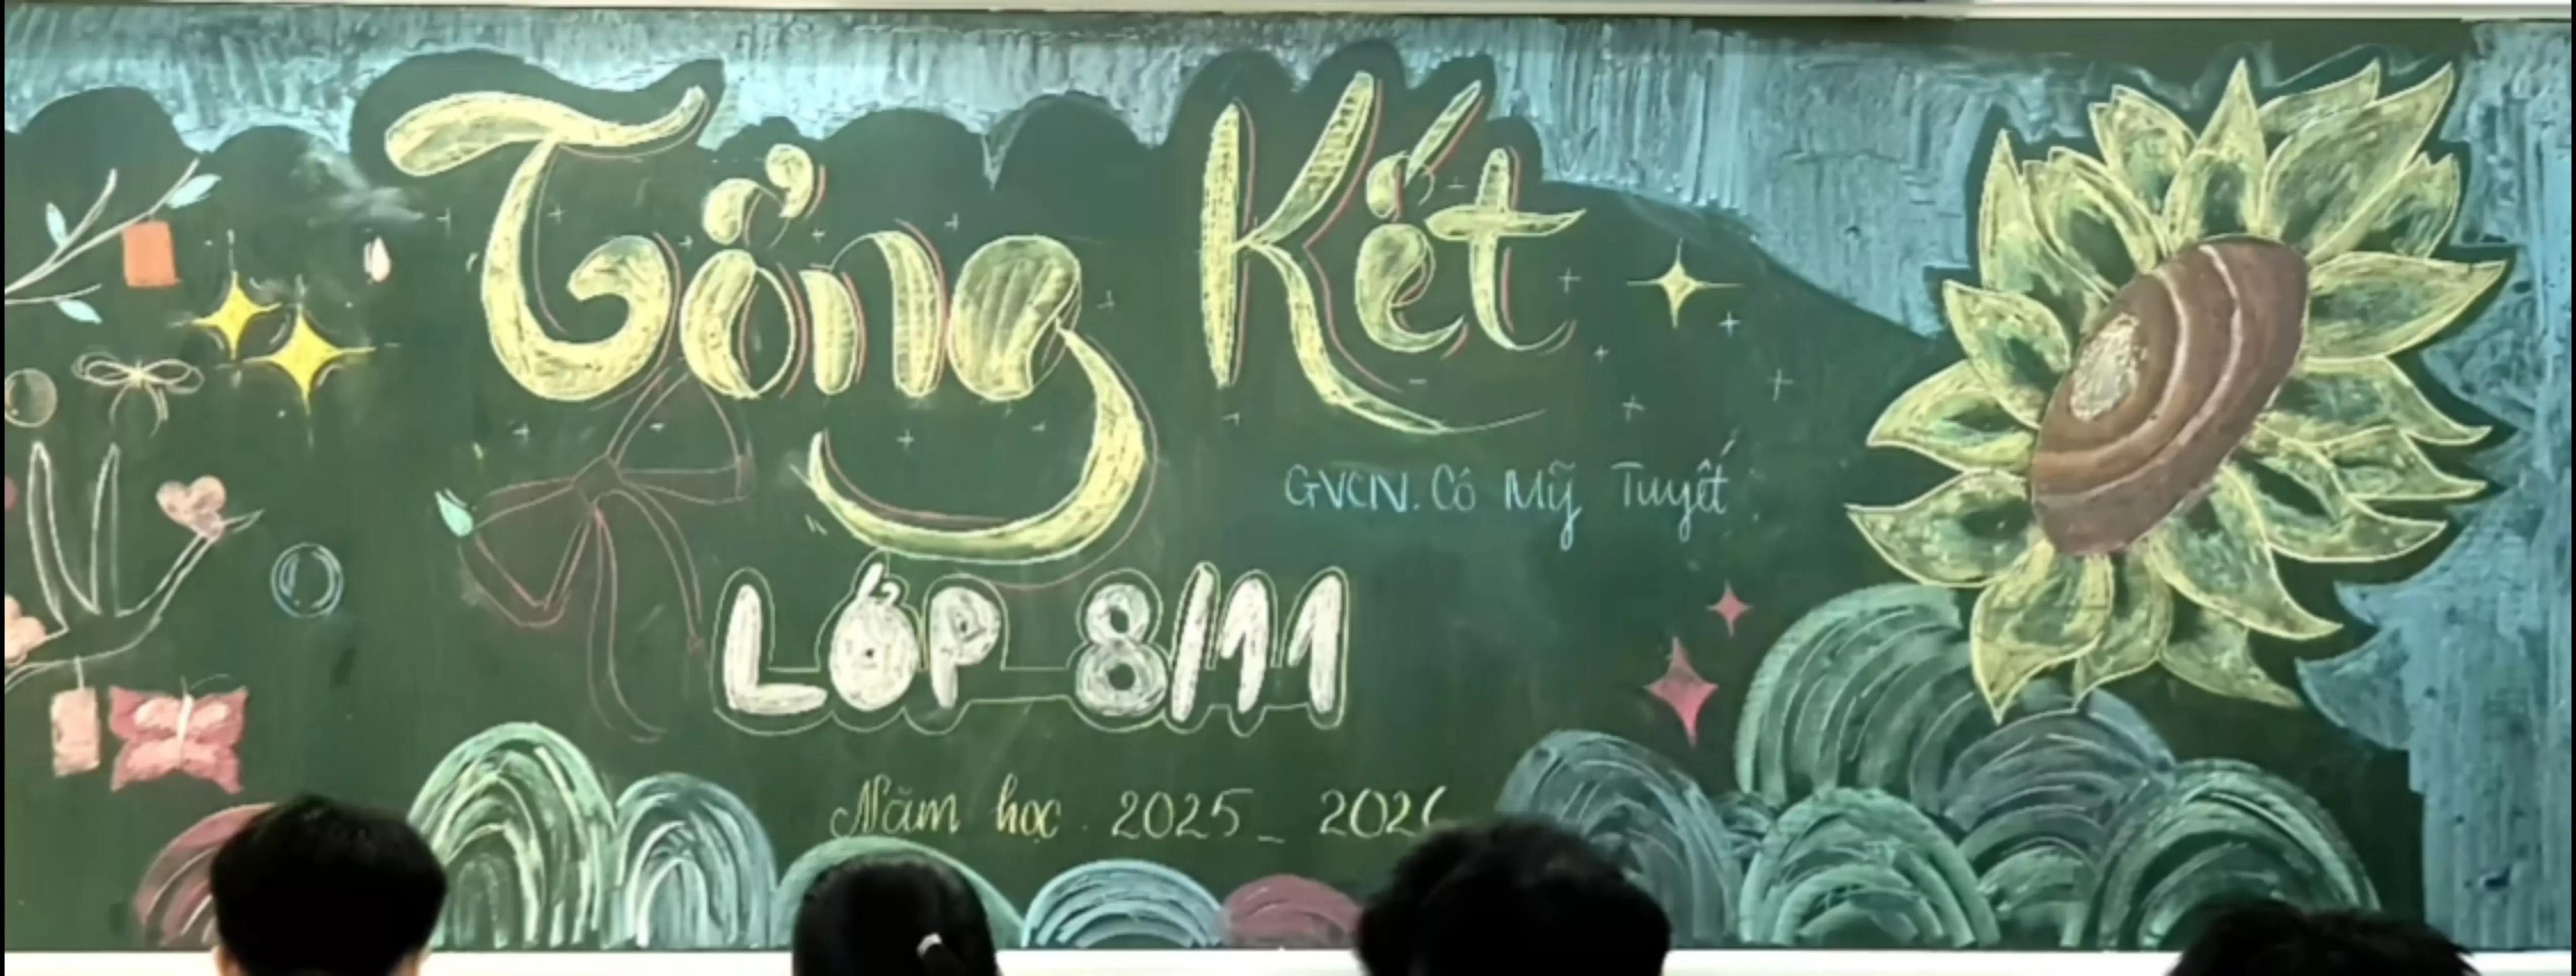 Tổng Kết
GVCN. Cô Mỹ Tuyết
LỚP 8/11
Năm học 2025_2026